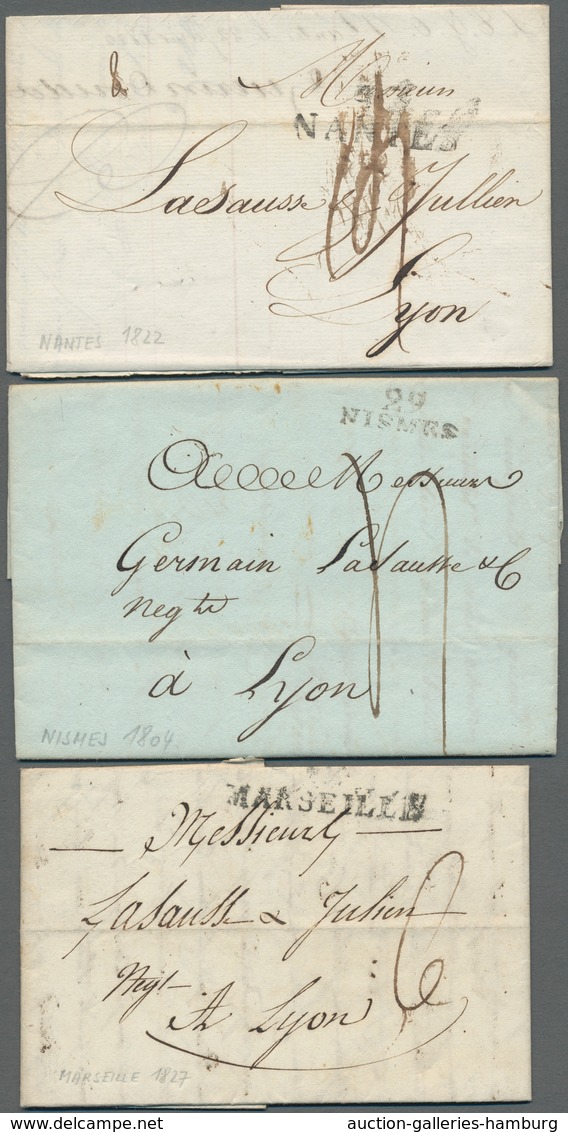 Messieurs
NANTES
Lasausse & Jullien
Lyon
NANTES 1822
29
NISMES
Messieurs
Germain Lasausse & C
Negts
à Lyon
NISMES 1804
MARSEILLE
Messieurs
Lasausse & Julien
Negt
A Lyon
6
MARSEILLE 1827
auction-galleries-hamburg